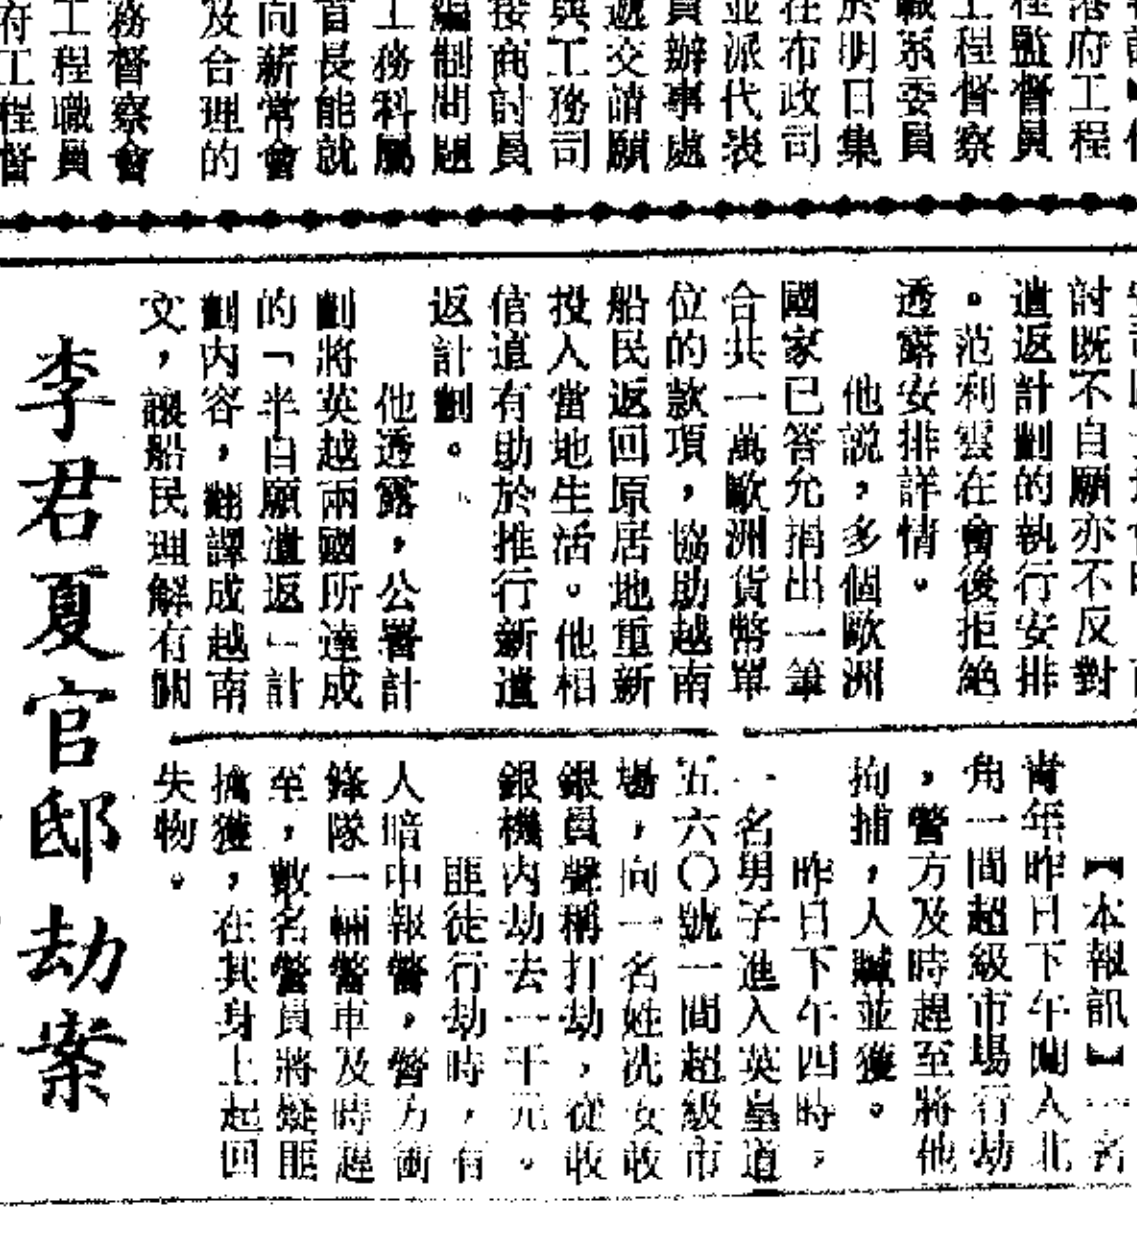 港府工程
程監督員
工程督察
職系委員
於明日集
在布政司
並派代表
員辦事處
遞交請願
與工務司
接商討員
編制問題
工務科屬
首長能就
向薪常會
及合理的
務督察會
工程職員
府工程督
討既不自願亦不反對
遣返計劃的執行安排
。范利雲在會後拒絶
透露安排詳情。
他説，多個歐洲
國家已答允捐出一筆
合共一萬歐洲貨幣單
位的款項，協助越南
船民返回原居地重新
投入當地生活。他相
信這有助於推行新遣
返計劃。
他透露，公署計
劃將英越兩國所達成
的「半自願遣返」計
劃內容，翻譯成越南
文，讓船民理解有關
【本報訊】一名
青年昨日下午闖入北
角一間超級市場行劫
，警方及時趕至將他
拘捕，人贓並獲。
昨日下午四時，
一名男子進入英皇道
五六〇號一間超級市
場，向一名姓冼女收
銀員聲稱打劫，從收
銀機內劫去一千元。
匪徒行劫時，有
人暗中報警，警方衝
鋒隊一輛警車及時趕
至，數名警員將疑匪
擒獲，在其身上起回
失物。
李君夏官邸劫案